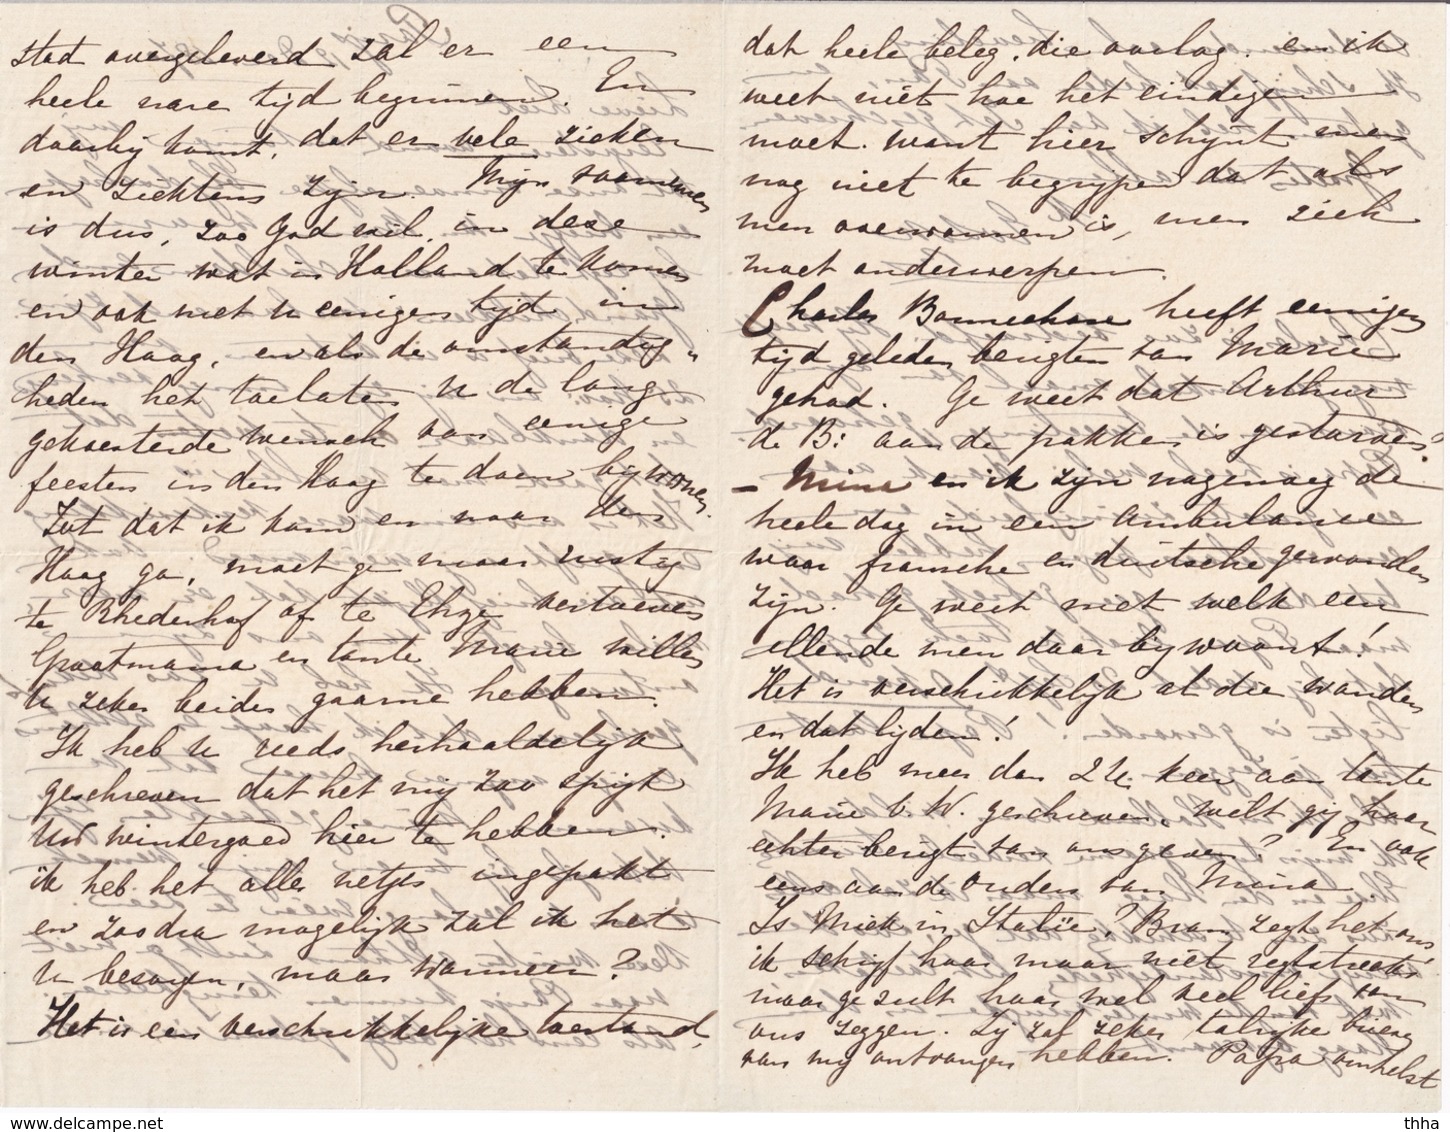 stad overgeleverd zal er een
heele nare tijd beginnen. En
daarbij komt, dat er vele zieken
en ziektens zijn. Mijn voornemen
is dus, zoo God wil, in deze
winter wat in Holland te komen
en ook met u eenigen tijd in
den Haag, en als de omstandig„
heden het toelaten u de lang
gekoesterde wensch van eenige
feesten in den Haag te doen bijwonen.
Tot dat ik kom en naar den
Haag ga, moet ge maar rustig
te Rhederhof of te Elze vertoeven
Grootmama en tante Marie willen
u zeker beiden gaarne hebben.
Ik heb u reeds herhaaldelijk
geschreven dat het mij zoo spijt
Uw wintergoed hier te hebben.
ik heb het alles netjes ingepakt
en zoodra mogelijk zal ik het
u bezorgen, maar wanneer?
Het is een verschrikkelijke toestand,
dat heele beleg, die oorlog. en ik
weet niet hoe het eindigen
moet. want hier schijnt men
nog niet te begrijpen dat als
men overwonnen is, men zich
moet onderwerpen.
Charles Bonnechose heeft eenigen
tijd geleden berigten van Marie
gehad. Ge weet dat Arthur
de B: aan de pokken is gestorven?
– Mina en ik zijn nagenoeg de
heele dag in een Ambulance
waar fransche en duitsche gewonden
zijn. Ge weet niet welk een
ellende men daar bijwoont!
Het is verschrikkelijk al die wonden
en dat lijden!
Ik heb meer dan keer aan tante
Marie v. W. geschreven, wilt gij haar
echter berigt van ons geven? En ook
eens aan de ouders van Mina
Is Miek in Italië? Bram zegt het ons,
ik schrijf haar maar niet regtstreeks
maar ge zult haar wel veel liefs van
ons zeggen. Zij zal zeker talrijke brieven
van mij ontvangen hebben. Papa omhelst
www.delcampe.net
thha